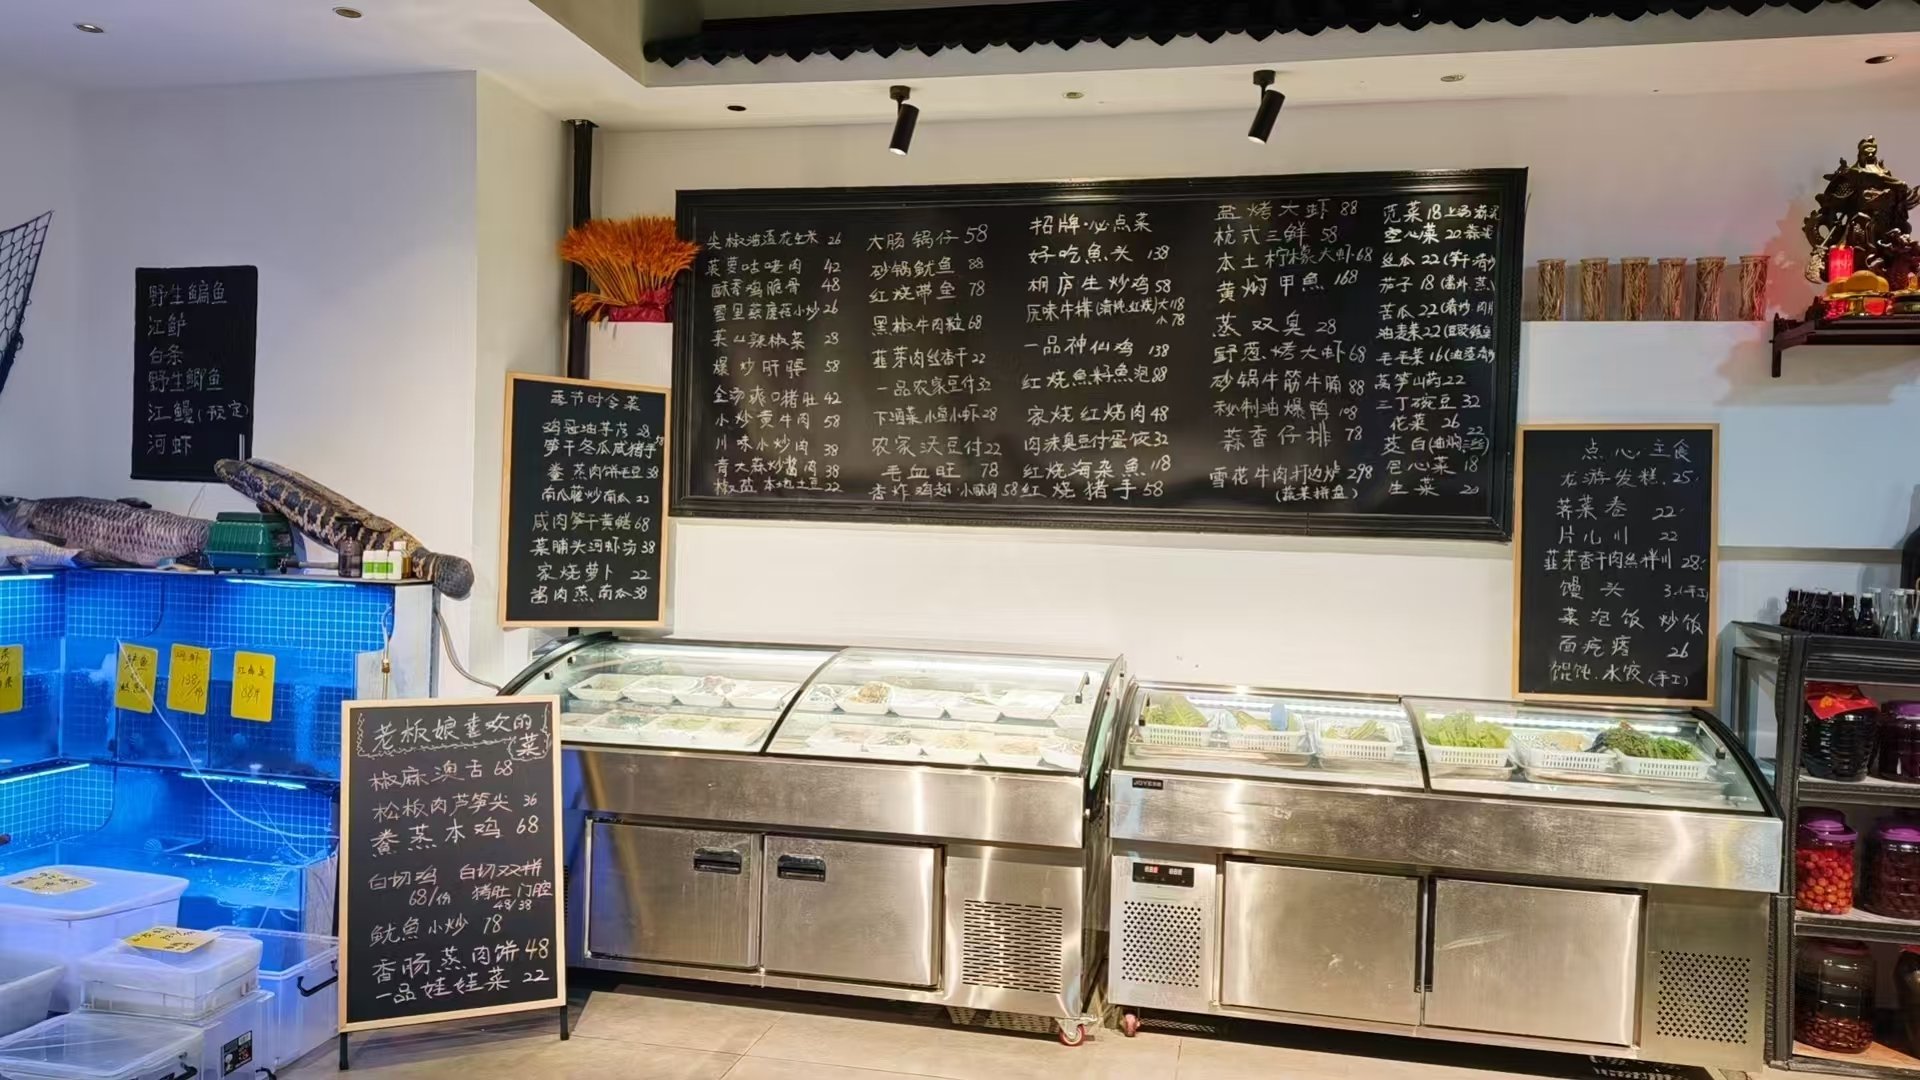 野生鳊鱼
江鲈
白条
野生鲫鱼
江鳗(预定)
河虾
季节时令菜
鸡冠油芋艿 28
笋干冬瓜咸猪手 58
鲞蒸肉饼毛豆 38
南瓜藤炒南瓜 22
咸肉笋干黄鳝 68
菜脯头河虾汤 38
家烧萝卜 22
酱肉蒸南瓜 38
老板娘喜欢的菜
椒麻澳舌 68
松板肉芦笋尖 36
鲞蒸本鸡 68
白切鸡 68/份
白切双拼
猪肚 门腔
48/38
鱿鱼小炒 78
香肠蒸肉饼 48
一品娃娃菜 22
尖椒油渣花生米 26
菠萝咕咾肉 42
酥香鸡脆骨 48
雪里蕻蘑菇小炒 26
辣椒菜 28
爆炒肝腰 58
金汤爽口猪肚 42
小炒黄牛肉 58
川味小炒肉 38
青大蒜炒酱肉 38
椒盐本地土豆 22
大肠锅仔 58
砂锅鱿鱼 88
红烧带鱼 78
黑椒牛肉粒 68
韭芽肉丝香干 22
一品农家豆付 32
下酒菜小鱼小虾 28
农家沃豆付 22
毛血旺 78
香炸鸡翅·小酥肉 58
招牌·必点菜
好吃鱼头 138
桐庐生炒鸡 58
原味牛排(清炖红烧)大118
小78
一品神仙鸡 138
红烧鱼籽鱼泡 88
家烧红烧肉 48
肉沫臭豆付蛋饺 32
红烧海杂鱼 118
红烧猪手 58
盐烤大虾 88
杭式三鲜 58
本土柠檬大虾 68
黄焖甲鱼 168
蒸双臭 28
野葱烤大虾 68
砂锅牛筋牛腩 88
秘制油爆鸭 108
蒜香仔排 78
雪花牛肉打边炉 298
(蔬菜拼盘)
苋菜 18
空心菜 20
丝瓜 22
茄子 18
苦瓜 22
油麦菜 22
毛毛菜 16
莴笋山药 22
三丁豌豆 32
花菜 26
茭白(油焖.三丝)
包心菜 18
生菜 20
点心主食
龙游发糕 25
荠菜卷 22
片儿川 22
韭芽香干肉丝拌川 28
馒头 3(手工)
菜泡饭 炒饭
面疙瘩 26
馄饨·水饺(手工)
JOYE